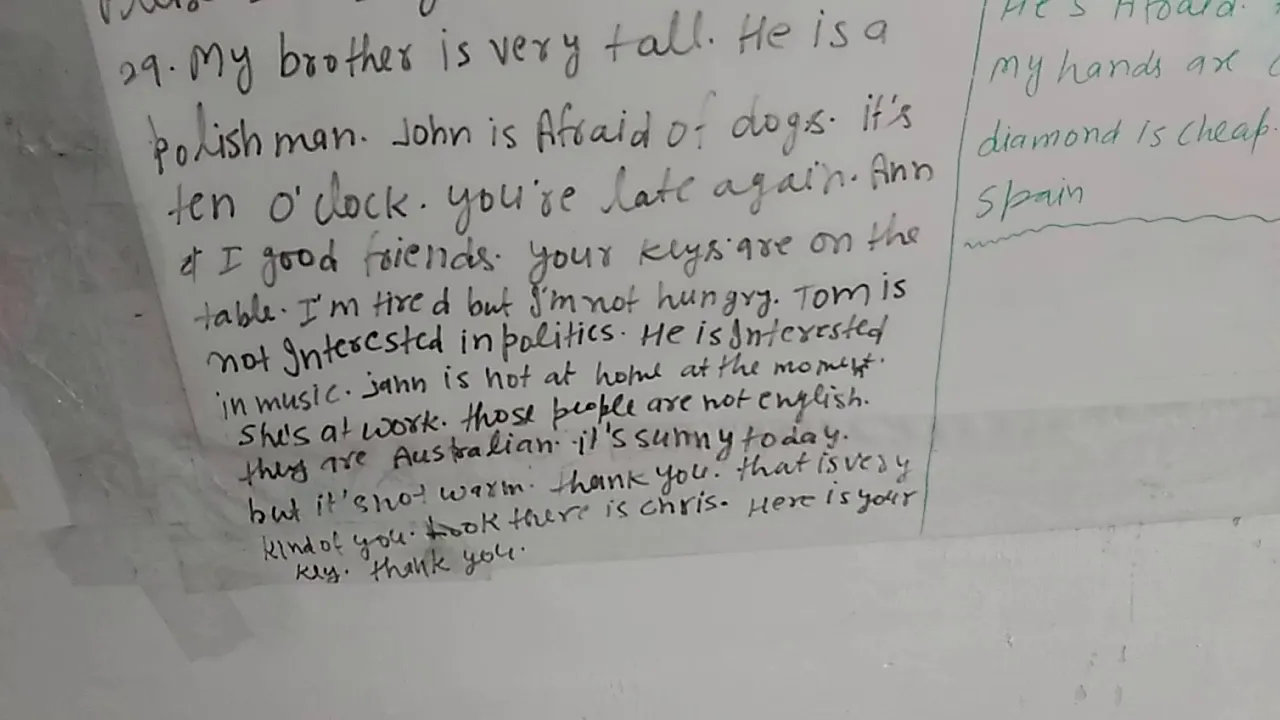 29. My brother is very tall. He is a
polish man. John is Afraid of dogs. it's
ten o'clock. you're late again. Ann
& I good friends. your keys are on the
table. I'm tired but I'm not hungry. Tom is
not Interested in politics. He is Interested
in music. jann is not at home at the moment.
she's at work. those people are not english.
they are Australian. it's sunny today.
but it's not warm. thank you. that is very
kind of you. Look there is chris. Here is your
key. thank you.
He's Afraid.
my hands are
diamond is cheap.
spain